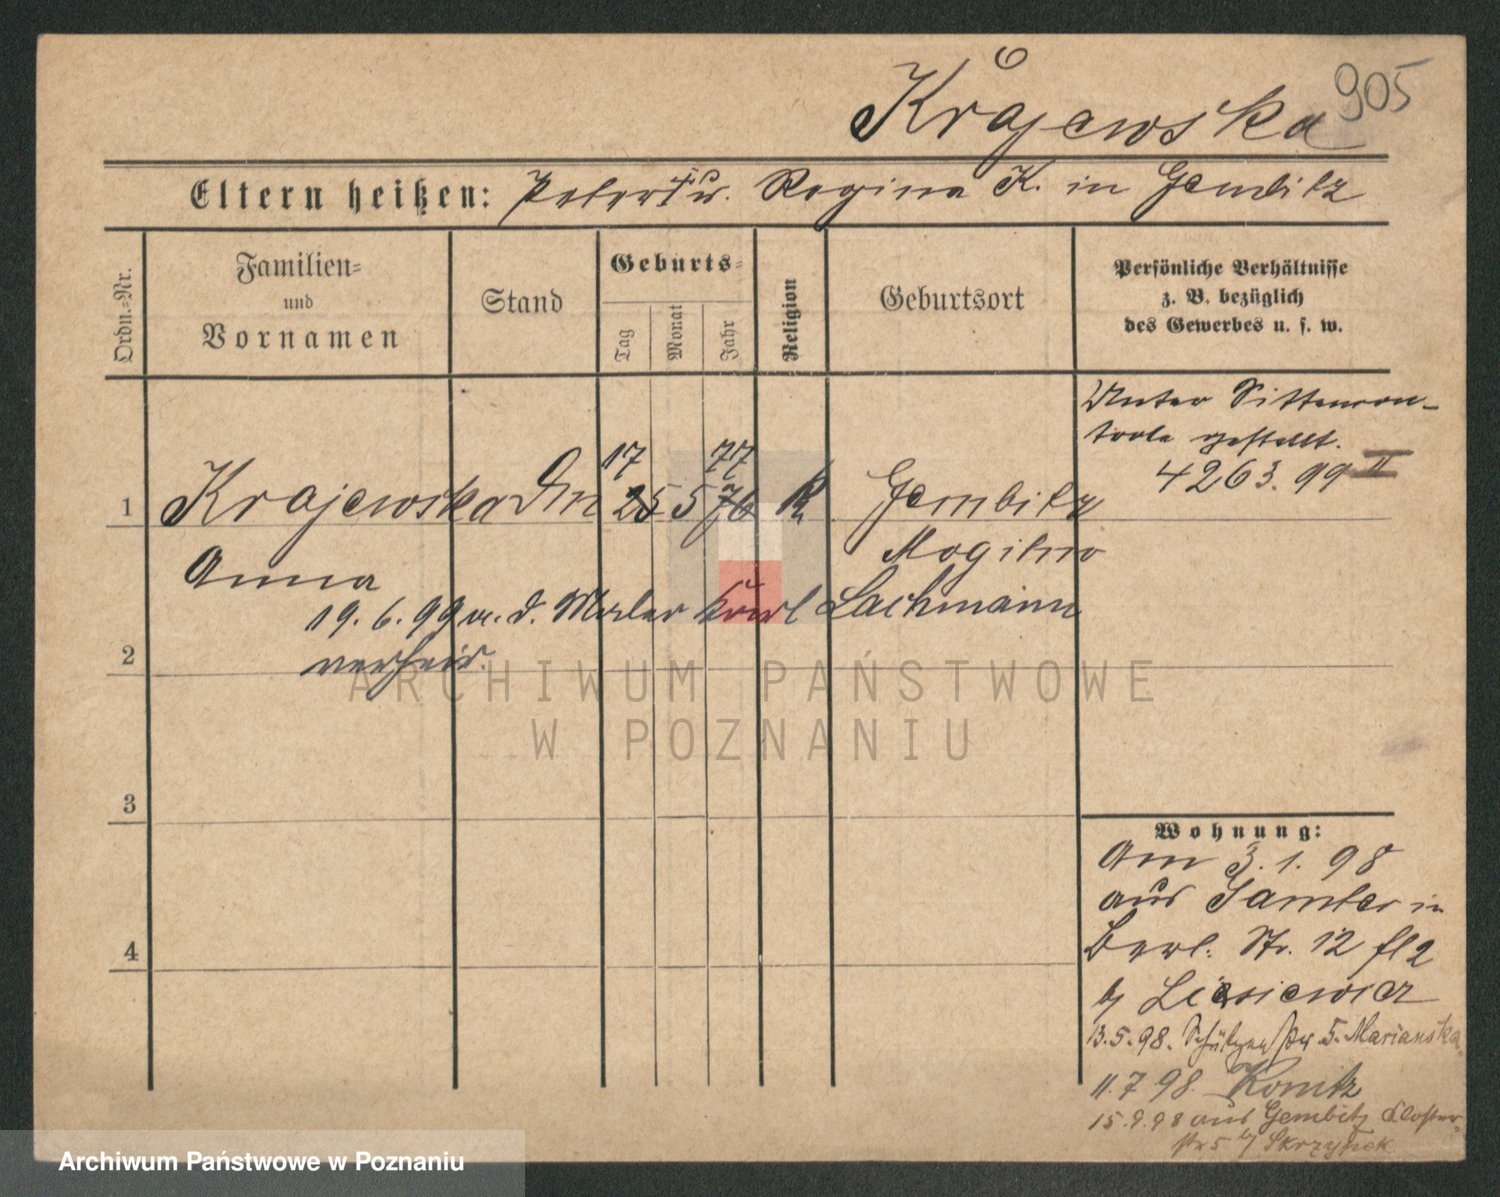 Krajewska
905
Eltern heißen: Peter † u. Regina K. in Gembitz
Ordn.-Nr.
Familien-
und
Vornamen
Stand
Geburts-
Tag
Monat
Jahr
Religion
Geburtsort
Persönliche Verhältnisse
z. B. bezüglich
des Gewerbes u. s. w.
Unter Sittencon-
trole gestellt.
4263.99 II
17 77
1 Krajewska Dm 25 5 76 K Gembitz
Anna Mogilno
19.6.99 m. d. Maler Karl Lachmann
verheir.
2
3
4
Wohnung:
Am 3.1.98
aus Samter in
Berl. Str. 12
b/
13.5.98. Schützenstr 5. Marianska
11.7 98. Konitz
15.9.98 aus Gembitz Kloster-
str 5 b/ Skrzypek
ARCHIWUM PAŃSTWOWE
W POZNANIU
Archiwum Państwowe w Poznaniu